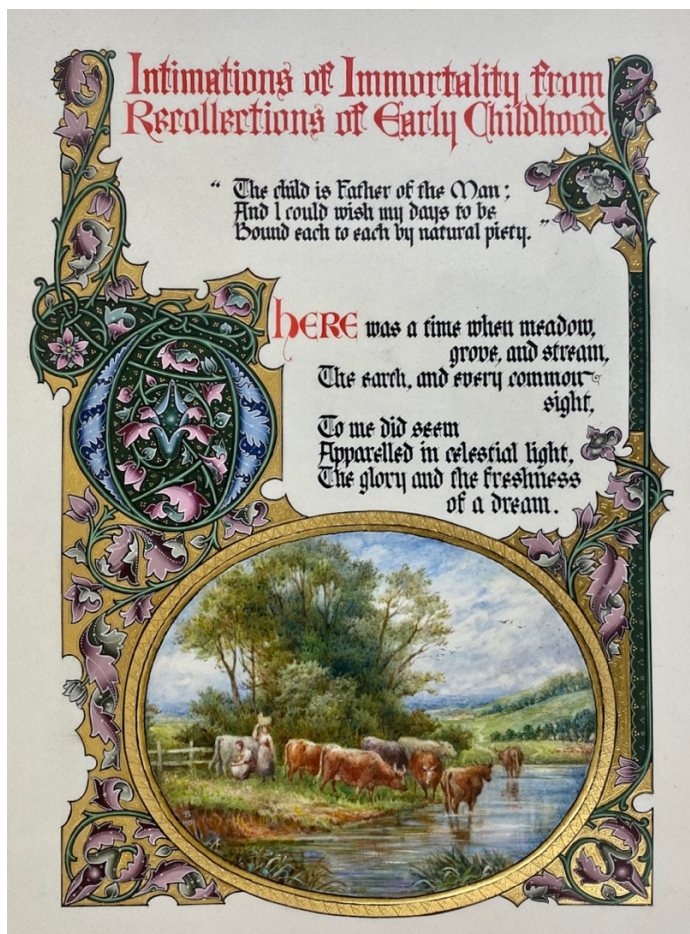 Intimations of Immortality from
Recollections of Early Childhood.
“ The child is Father of the Man ;
And I could wish my days to be
Bound each to each by natural piety. ”
There was a time when meadow,
grove, and stream,
The earth, and every common
sight,
To me did seem
Apparelled in celestial light,
The glory and the freshness
of a dream.